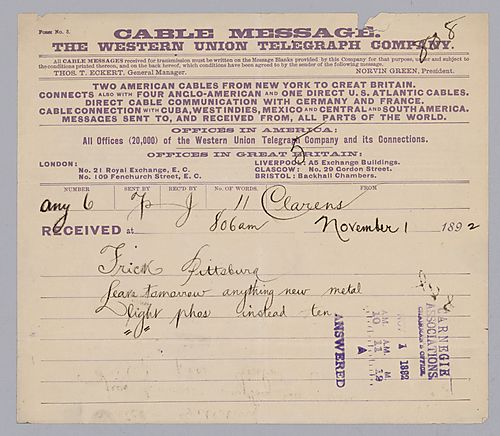 FORM No. 3.
CABLE MESSAGE.
THE WESTERN UNION TELEGRAPH COMPANY.
All CABLE MESSAGES received for transmission must be written on the Message Blanks provided by this Company for that purpose, under and subject to
the conditions printed thereon, and on the back hereof, which conditions have been agreed to by the sender of the following message.
THOS. T. ECKERT, General Manager. NORVIN GREEN, President.
TWO AMERICAN CABLES FROM NEW YORK TO GREAT BRITAIN.
CONNECTS ALSO WITH FOUR ANGLO-AMERICAN AND ONE DIRECT U.S. ATLANTIC CABLES.
DIRECT CABLE COMMUNICATION WITH GERMANY AND FRANCE.
CABLE CONNECTION WITH CUBA, WEST INDIES, MEXICO AND CENTRAL AND SOUTH AMERICA.
MESSAGES SENT TO, AND RECEIVED FROM, ALL PARTS OF THE WORLD.
OFFICES IN AMERICA:
All Offices (20,000) of the Western Union Telegraph Company and its Connections.
OFFICES IN GREAT BRITAIN:
LONDON: LIVERPOOL: A5 Exchange Buildings.
No. 21 Royal Exchange, E. C. GLASCOW: No. 29 Gordon Street.
No. 109 Fenchurch Street, E. C. BRISTOL: Backhall Chambers.
NUMBER SENT BY REC'D BY No. OF WORDS. FROM
any 6 J 11 Clarens
RECEIVED at 806am November 1 1892
Frick Pittsburg
Leave tomorrow anything new metal
light phos instead ten
CARNEGIE
ASSOCIATIONS
CHAIRMAN'S OFFICE
1 1892
ANSWERED